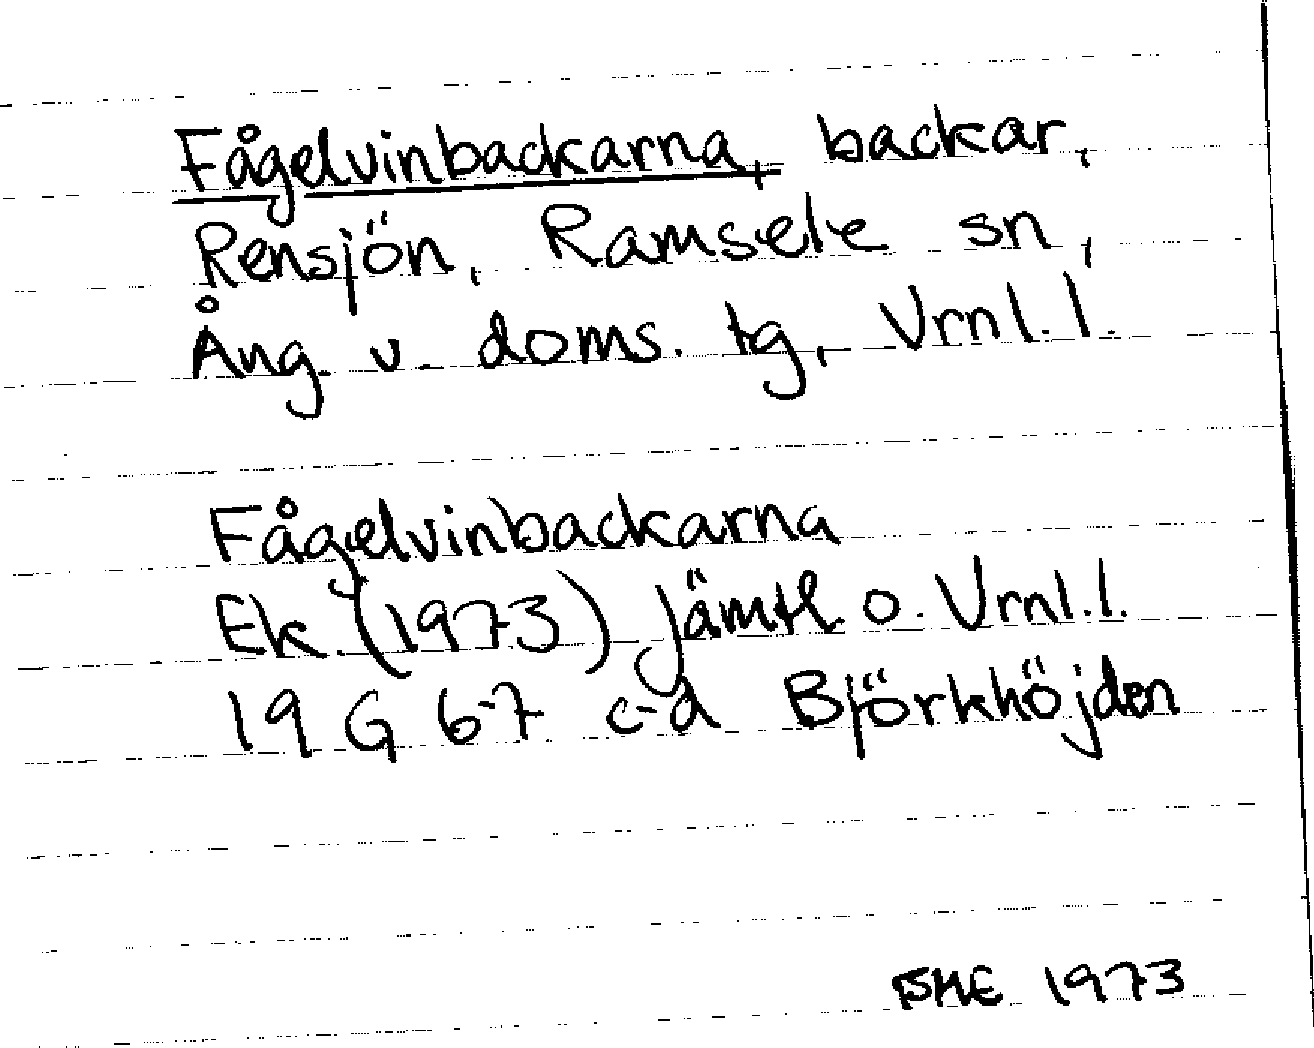 Fågelvinbackarna, backar,
Rensjön, Ramsele sn,
Ång. v. doms. tg, Vrnl. l.
Fågelvinbackarna
Ek. (1973) Jämtl o. Vrnl. l.
19 G 6-7 c-d Björkhöjden
BME 1973